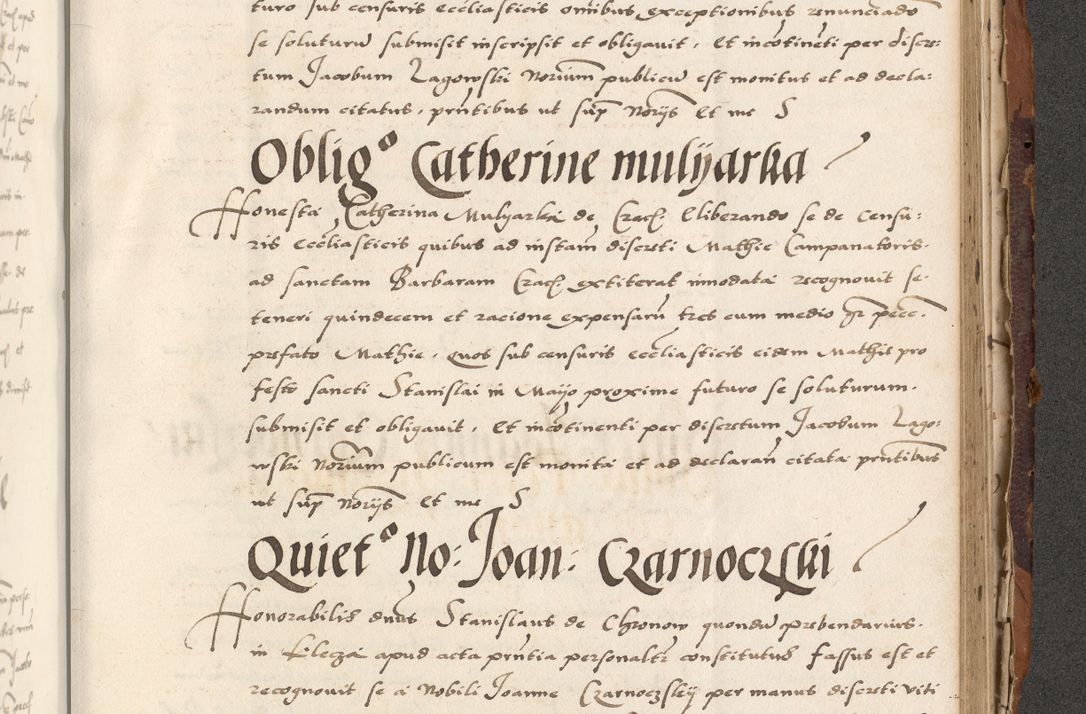 turo sub censuris eccliasticis omibus exceptionibus renunciado
se soluturu submisit inscripsit et obligauit. Et incotineti per discre:
tum Jacobum Lagowski Norium publicu est monitus et ad decla:
randum citatus, pntibus ut sup Norijs Et me S
Oblig° Catherine mulyarka
Honesta Catherina Mulyarka de Crach. Cliberando se de censu:
ris eccliasticis quibus ad instam discreti Mathie Campanatoris.
ad sanctam Barbaram Crach. extiterat innodata recognouit se.
teneri quindecem et racione expensaru tres cum medio gr pecc.
prefato Mathie. quos sub censuris eccliasticis eidem Mathie pro
festo sancti Stanislai in Mayo proxime futuro se soluturum.
submisit et obligauit. Et incotinenti per discretum Jacobum Lago:
wski Norium publicum est monita et ad declaran citata pntibus
ut sup Norijs Et me S
Quiet° No: Joan: Czarnoczski
Honorabilis dnus Stanislaus de Chronow quondu prebendarius.
in Klecza apud acta pntia personalr constitutus fassus est et
recognouit se a Nobili Joanne Czarnoczskij per manus discreti viti